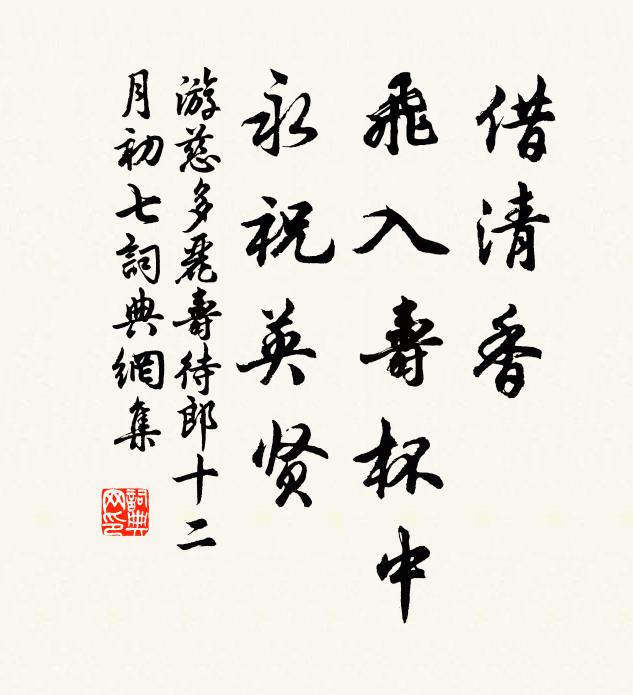 借清香
飛入壽杯中
永祝英贤
游慈多丽壽待郎十二
月初七詞典網集
詞典网印